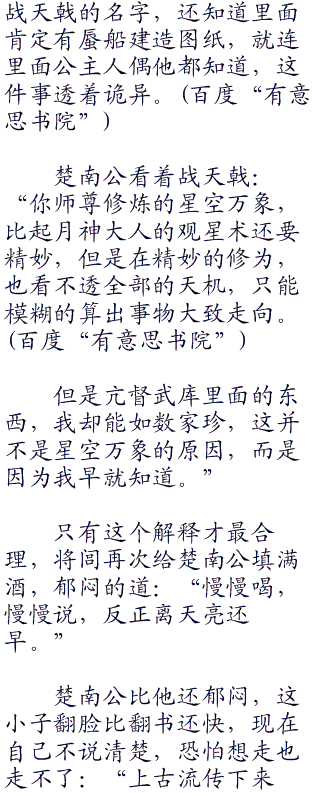 战天戟的名字，还知道里面
肯定有蜃船建造图纸，就连
里面公主人偶他都知道，这
件事透着诡异。(百度“有意
思书院”)
楚南公看着战天戟：
“你师尊修炼的星空万象，
比起月神大人的观星术还要
精妙，但是在精妙的修为，
也看不透全部的天机，只能
模糊的算出事物大致走向。
(百度“有意思书院”)
但是亢督武库里面的东
西，我却能如数家珍，这并
不是星空万象的原因，而是
因为我早就知道。”
只有这个解释才最合
理，将闾再次给楚南公填满
酒，郁闷的道：“慢慢喝，
慢慢说，反正离天亮还
早。”
楚南公比他还郁闷，这
小子翻脸比翻书还快，现在
自己不说清楚，恐怕想走也
走不了：“上古流传下来